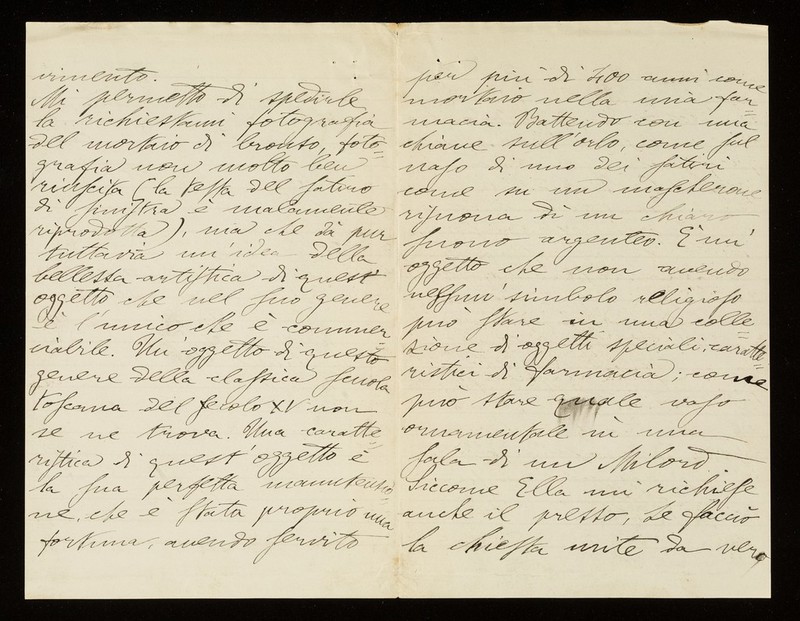 vimento.
Mi permetto di spedirle
la richiestami fotografia
del mortaio di bronzo, foto=
grafia non molto ben
riuscita (la testa del satiro
di sinistra è malamente
riprodotta), ma che dà pur
tuttavia un'idea della
bellezza artistica di quest'
oggetto che nel suo genere
è l'unico che è commer=
ciabile. Un'oggetto di questo
genere della classica scuola
toscana del secolo XV non
se ne trova. Una caratte=
ristica di quest'oggetto è
la sua perfetta manutenzio
ne, che è stata proprio una
fortuna, avendo servito
per più di 400 anni come
mortaio nella mia far=
macia. Battendo con una
chiave sull'orlo, come sul
naso di uno dei satiri
come su un mascherone
risuona di un chiaro
suono argenteo. È un'
oggetto che non avendo
nessun'simbolo religioso
può stare in una colle=
zione di oggetti speciali, caratte=
ristici di farmacia; come
può stare quale vaso
ornamentale in una
sala di un Milord
Siccome Ella mi richiese
anche il prezzo, Le faccio
la chiesta mite da vero